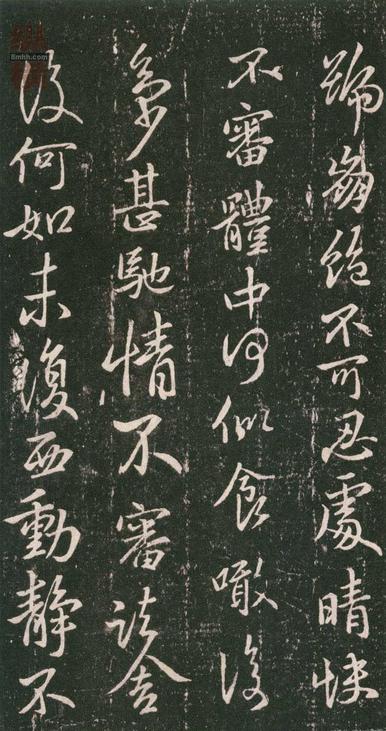 絶不可忍處晴快
不審體中何似食噉復
多少甚馳情不審諸舍
復何如未復西動靜不
8mhh.com